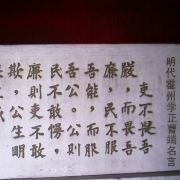 明代霍州学正曹端名言
吏不畏吾
嚴，而畏吾
廉，民不服
吾能，而服
吾公。公则
民不敢慢，
廉则吏不敢
欺，公生明